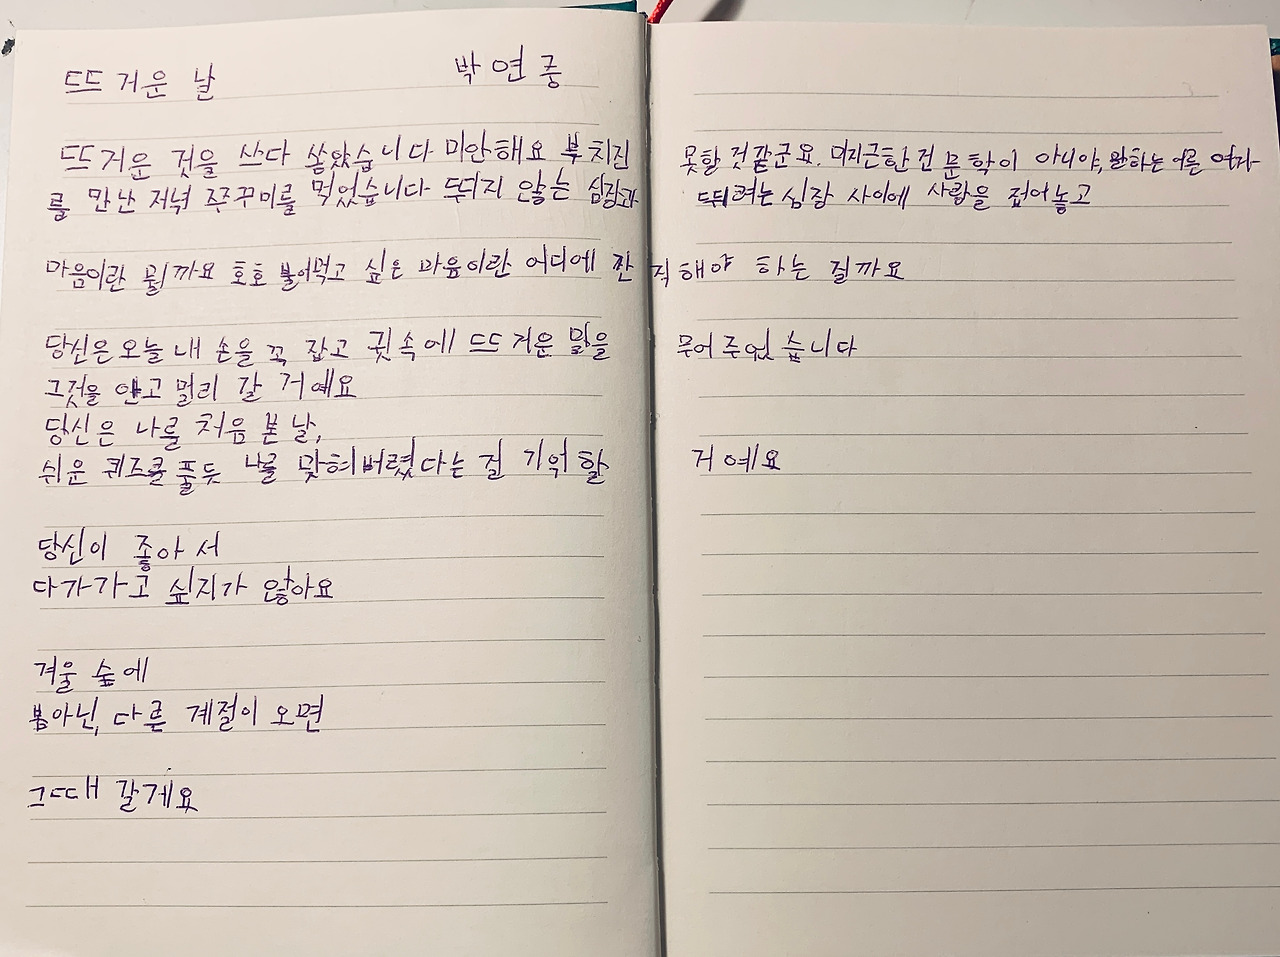 뜨거운 날 박연준
뜨거운 것을 쓰다 쏟았습니다 미안해요 부치진 못할 것 같군요. 미지근한 건 문학이 아니야, 말하는 어른 여자
를 만난 저녁 쭈꾸미를 먹었습니다 뛰지 않는 심장과 뛰려는 심장 사이에 사랑을 접어놓고
마음이란 뭘까요 호호 불어먹고 싶은 마음이란 어디에 간직해야 하는 걸까요
당신은 오늘 내 손을 꼭 잡고 귓속에 뜨거운 말을 부어주었습니다
그것을 안고 멀리 갈 거예요
당신은 나를 처음 본 날,
쉬운 퀴즈를 풀듯 나를 맞혀버렸다는 걸 기억할 거예요
당신이 좋아서
다가가고 싶지가 않아요
겨울 숲에
봄 아닌, 다른 계절이 오면
그때 갈게요